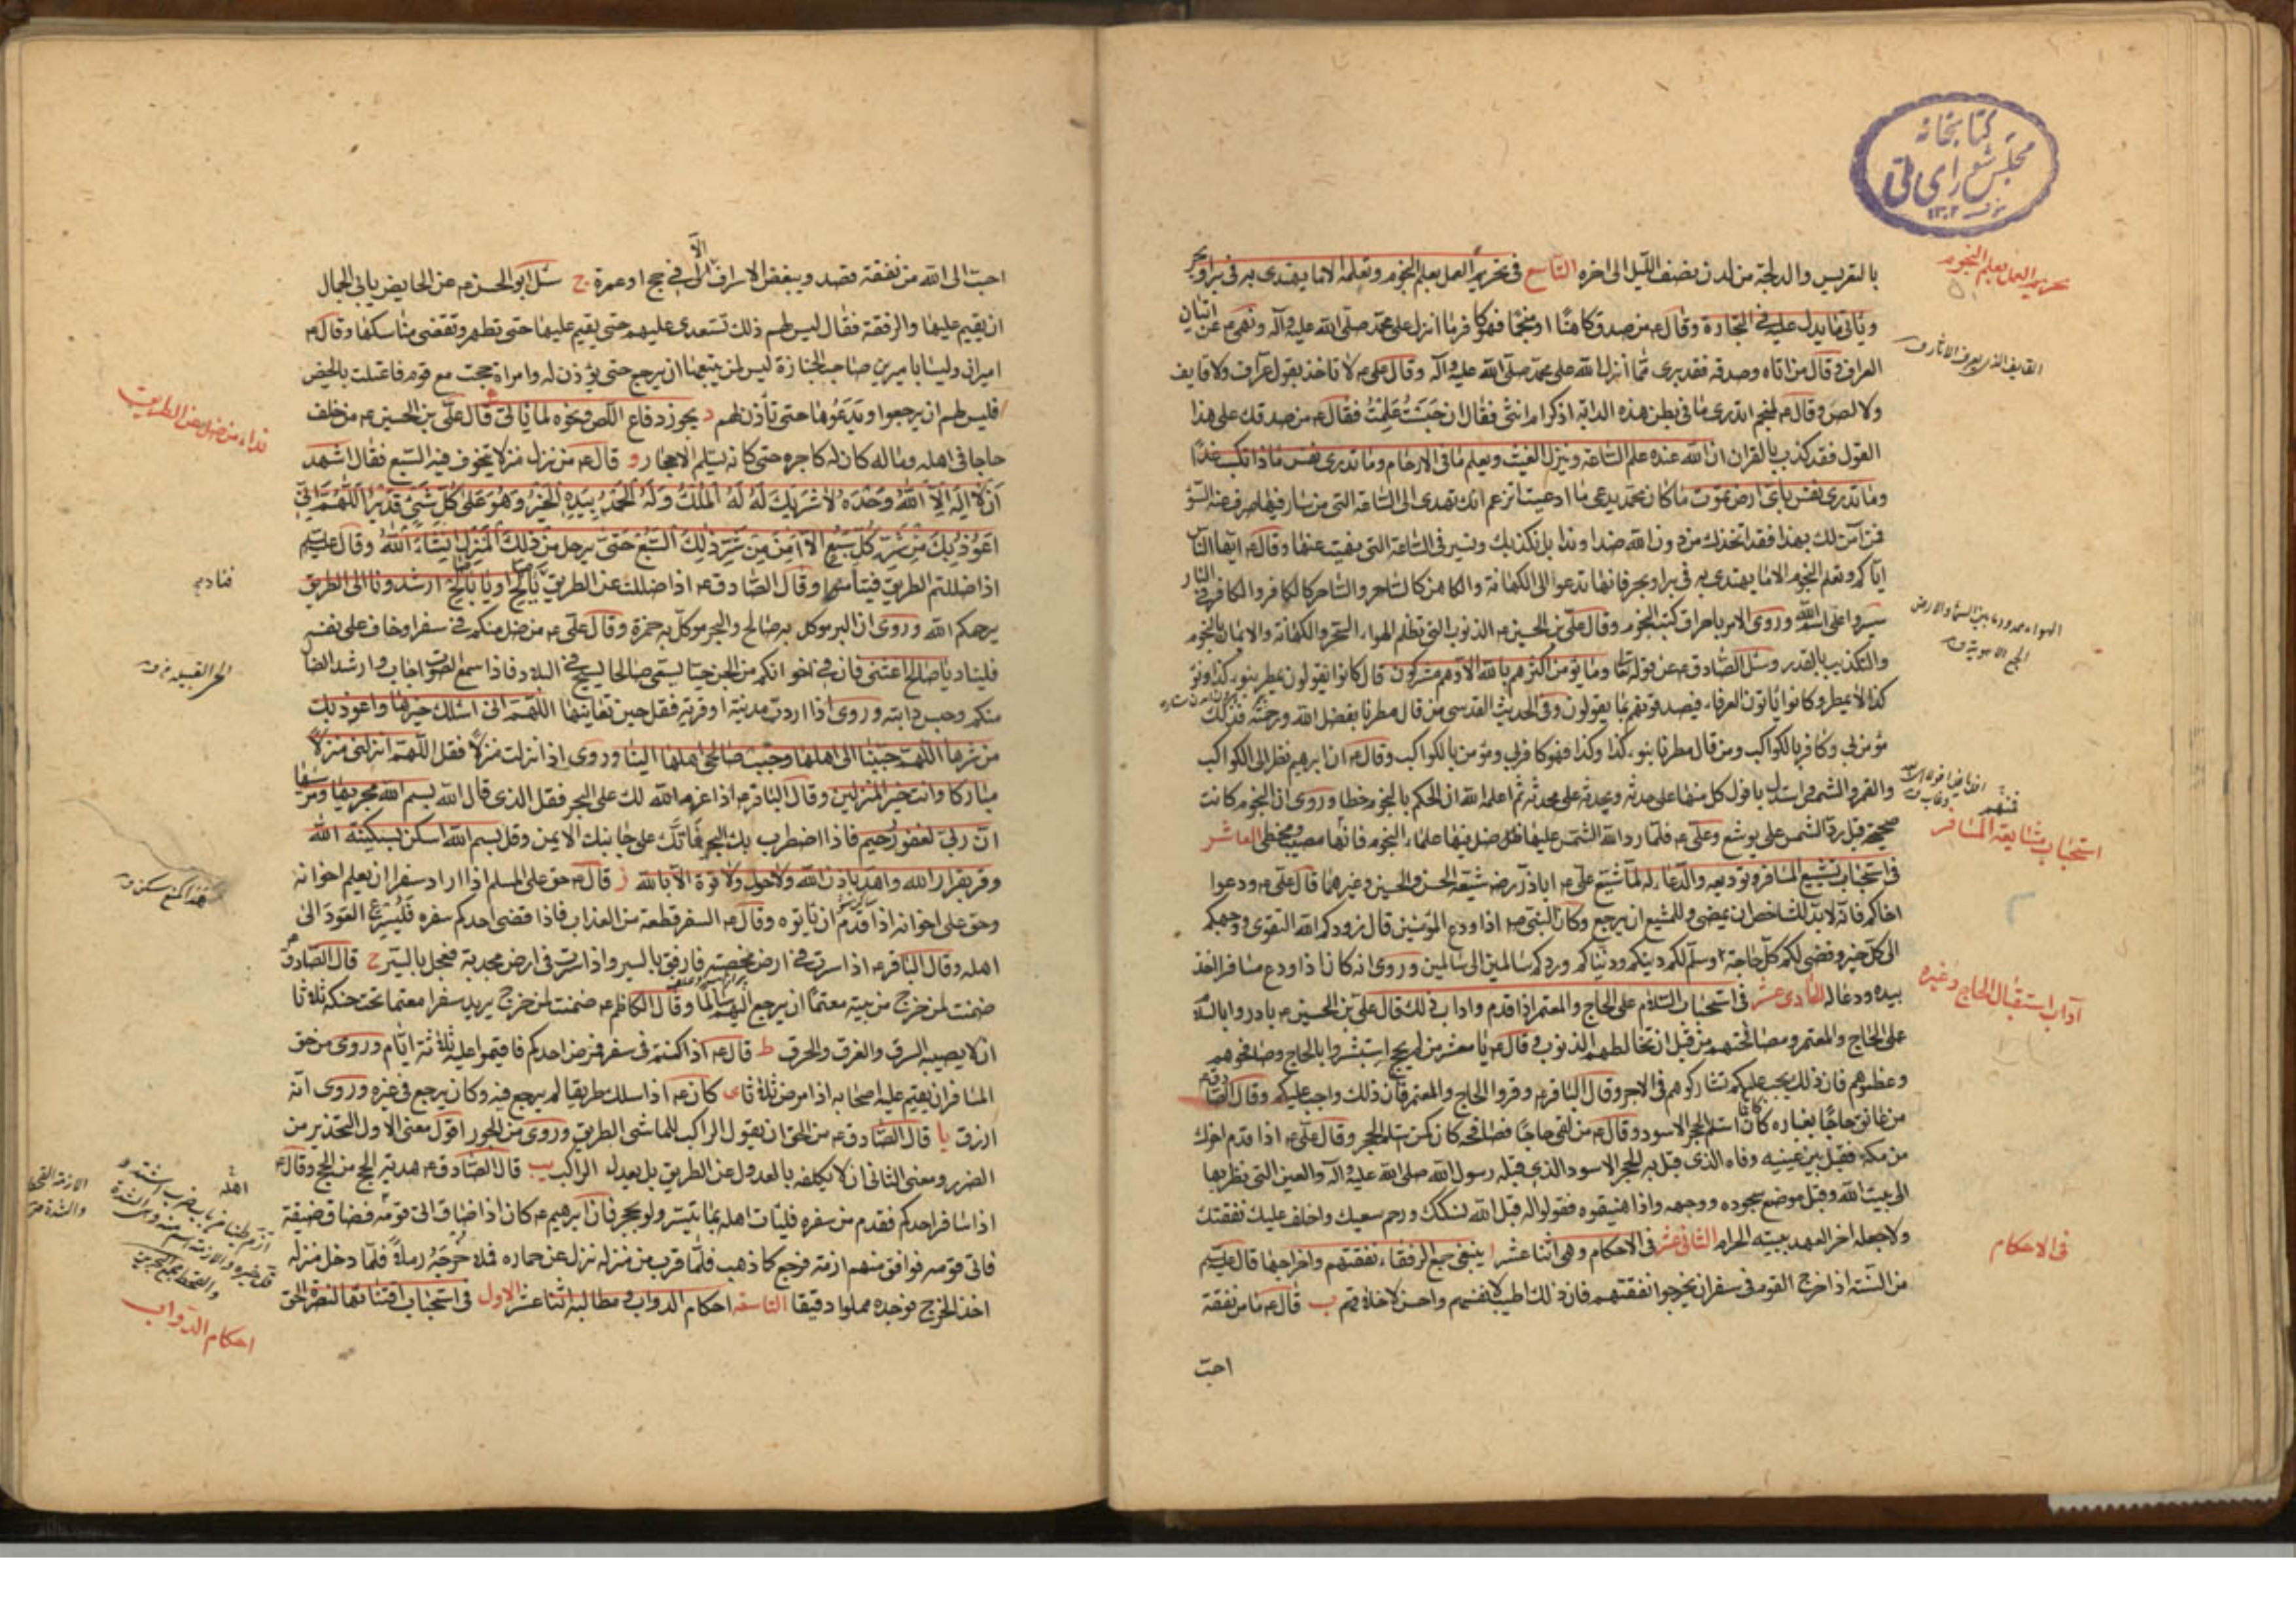 كتابخانه
مجلس شورای ملی
۱۳۰۲
تحريم العمل بعلم النجوم
بالتعريس والدلجة من لدن نصف الليل الى اخره التاسع فى تحريم العمل بعلم النجوم وتعلمه الا ما يهتدى به فى بر او بحر
وياتى ما يدل عليه فى التجارة وقال ع من صدق كاهنا او منجما فهو كافر بما انزل على محمد صلى الله عليه وآله ونهى ع عن اتيان
العراف وقال من اتاه وصدقه فقد برئ مما انزل الله على محمد صلى الله عليه وآله وقال على ع لا تاخذ بقول عراف ولا قايف
القايف الذى يعرف الاثار ق
ولا لص وقال ع لمنجم اتدرى ما فى بطن هذه الدابة اذكر ام انثى فقال ان حسبت علمت فقال ع من صدقك على هذا
القول فقد كذب بالقران ان الله عنده علم الساعة وينزل الغيث ويعلم ما فى الارحام وما تدرى نفس ماذا تكسب غدا
وما تدرى نفس باى ارض تموت ما كان محمد يدعى ما ادعيت اتزعم انك تهدى الى الساعة التى من سار فيها صرف عنه السوء
فمن آمن لك بهذا فقد اتخذك من دون الله ضدا وندا بل نكذبك ونسير فى الساعة التى نهيت عنها وقال ع ايها الناس
اياكم وتعلم النجوم الا ما يهتدى به فى بر او بحر فانها تدعوا الى الكهانة والكاهن كالساحر والساحر كالكافر والكافر فى النار
سيروا على اسم الله وروى الامر باحراق كتب النجوم وقال على بن الحسين ع الذنوب التى تظلم الهواء السحر والكهانة والايمان بالنجوم
الهواء ممدود ما بين السماء والارض
الجمع الاهوية ق
والتكذيب بالقدر وسئل الصادق ع عن قوله تعالى وما يؤمن اكثرهم بالله الا وهم مشركون قال كانوا يقولون نمطر بنوء كذا ونوء
كذا لا نمطر وكانوا ياتون العرفاء فيصدقونهم بما يقولون وفى الحديث القدسى من قال مطرنا بفضل الله ورحمته فذلك
مؤمن بى وكافر بالكواكب ومن قال مطرنا بنوء كذا وكذا فهو كافر بى ومؤمن بالكواكب وقال ع ان ابرهيم نظر الى الكواكب
والقمر والشمس واستدل بافول كل منها على حدثه وبحدثه على محدثه ثم اعلمه الله ان الحكم بالنجوم خطا وروى ان النجوم كانت
صحيحة قبل رد الشمس على يوشع وعلى ع فلما رد الله الشمس عليهما ضل فيها علماء النجوم فانها مصيب ومخطى العاشر
استحباب مشايعة المسافر
فى استحباب تشييع المسافر وتوديعه والدعاء له لما شيع على ع اباذر رضه شيعه الحسن والحسين وغيرهما قال على ع ودعوا
اخاكم فانه لا بد للشاخص ان يمضى وللمشيع ان يرجع وكان النبى ص اذا ودع المؤمنين قال زودكم الله التقوى ووجهكم
الى كل خير وقضى لكم كل حاجة وسلم لكم دينكم ودنياكم وردكم سالمين الى سالمين وروى انه كان اذا ودع مسافرا اخذ
آداب استقبال الحاج وغيره
بيده ودعا له الحادى عشر فى استحباب السلام على الحاج والمعتمر اذا قدم واداب ذلك قال على بن الحسين ع بادروا بالسلام
على الحاج والمعتمر ومصافحتهم من قبل ان تخالطهم الذنوب وقال ع يا معشر من لم يحج استبشروا بالحاج وصافحوهم
وعظموهم فان ذلك يجب عليكم تشاركوهم فى الاجر وقال الباقر ع وقروا الحاج والمعتمر فان ذلك واجب عليكم وقال الصادق ع
من عانق حاجا بغباره كان كانما استلم الحجر الاسود وقال ع من لقى حاجا فصافحه كان كمن استلم الحجر وقال على ع اذا قدم اخوك
من مكة فقبل بين عينيه وفاه الذى قبل به الحجر الاسود الذى قبله رسول الله صلى الله عليه وآله والعين التى نظر بها
الى بيت الله وقبل موضع سجوده ووجهه واذا هنيتموه فقولوا له قبل الله نسكك ورحم سعيك واخلف عليك نفقتك
ولا جعله اخر العهد ببيته الحرام الثانى عشر فى الاحكام وهى اثنا عشر ا ينبغى جمع الرفقاء نفقتهم واخراجها قال ع
فى الاحكام
من السنة اذا خرج القوم فى سفر ان يخرجوا نفقتهم فان ذلك اطيب لانفسهم واحسن لاخلاقهم ب قال ع ما من نفقة
احب
احب الى الله من نفقة قصد ويبغض الاسراف الا فى حج او عمرة ج سئل ابو الحسن ع عن الحايض يابى الجمال
ان يقيم عليها والرفقة فقال ليس لهم ذلك تستعدى عليهم حتى يقيم عليها حتى تطهر وتقضى مناسكها وقال ع
اميران وليسا باميرين صاحب الجنازة ليس لمن يتبعها ان يرجع حتى يؤذن له وامراة حجت مع قوم فاعتلت بالحيض
فليس لهم ان يرجعوا ويدعوها حتى تأذن لهم د يجوز دفاع اللص ونحوه لما ياتى قال على بن الحسين ع من خلف
نداء من ضل عن الطريق
حاجا فى اهله وماله كان له كاجره حتى كانه يستلم الاحجار و قال ع من نزل منزلا يتخوف فيه السبع فقال اشهد
ان لا اله الا الله وحده لا شريك له له الملك وله الحمد بيده الخير وهو على كل شئ قدير اللهم انى
اعوذ بك من شر كل سبع الا امن من شر ذلك السبع حتى يرحل من ذلك المنزل انشاء الله وقال ع
اذا ضللتم الطريق فتيامنوا وقال الصادق ع اذا ضللت عن الطريق فناد يا صالح او يا ابا صالح ارشدونا الى الطريق
يرحمكم الله وروى ان البر موكل به صالح والبحر موكل به حمزة وقال على ع من ضل منكم فى سفر او خاف على نفسه
فليناد يا صالح اغثنى فان فى اخوانكم من الجن جنيا يسمى صالحا يسيح فى البلاد فاذا سمع الصوت اجاب وارشد الضال
منكم وحبس دابته وروى اذا اردت مدينة او قرية فقل حين تعاينها اللهم انى اسئلك خيرها واعوذ بك
من شرها اللهم حببنا الى اهلها وحبب صالحى اهلها الينا وروى اذا نزلت منزلا فقل اللهم انزلنى منزلا
مباركا وانت خير المنزلين وقال الباقر ع اذا عزم الله لك على البحر فقل الذى قال الله بسم الله مجريها ومرسيها
ان ربى لغفور رحيم فاذا اضطرب بك البحر فاتك على جانبك الايمن وقل بسم الله اسكن بسكينة الله
وقر بقرار الله واهدأ باذن الله ولا حول ولا قوة الا بالله ز قال ع حق على المسلم اذا اراد سفرا ان يعلم اخوانه
وحق على اخوانه اذا قدم ان ياتوه وقال ع السفر قطعة من العذاب فاذا قضى احدكم سفره فليسرع العود الى
اهله وقال الباقر ع اذا سرت فى ارض مخصبة فارفق بالسير واذا سرت فى ارض مجدبة فعجل بالسير ح قال الصادق ع
ضمنت لمن خرج من بيته معتما ان يرجع اليهم سالما وقال الكاظم ع ضمنت لمن خرج يريد سفرا معتما تحت حنكه ثلاثا
ان لا يصيبه السرق والغرق والحرق ط قال ع اذا كنتم فى سفر فمرض احدكم فاقيموا عليه ثلاثة ايام وروى من حق
المسافر ان يقيم عليه اصحابه اذا مرض ثلاثا ى كان ع اذا سلك طريقا لم يرجع فيه وكان يرجع فى غيره وروى انه
ارزق يا قال الصادق ع من الحق ان يقول الراكب للماشى الطريق وروى من الجور اقول معنى الاول التحذير من
الضرر ومعنى الثانى ان لا يكلفه بالعدول عن الطريق بل يعدل الراكب يب قال الصادق ع هدية الحج من الحج وقال ع
اذا سافر احدكم فقدم من سفره فليات اهله بما تيسر ولو بحجر فان ابرهيم ع كان اذا ضاق اتى قومه فضاق ضيقة
فاتى قومه فوافق منهم ازمة فرجع كما ذهب فلما قرب من منزله نزل عن حماره فملا خرجه رملا فلما دخل منزله
اخذ الخرج فوجده مملوا دقيقا التاسعة احكام الدواب ومطالبه اثنا عشر الاول فى استحباب اقتنائها لنصرة الحق
احكام الدواب